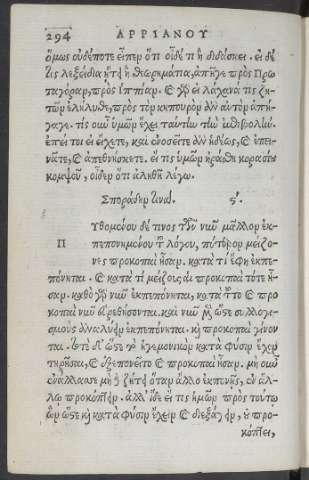 294 ΑΡΡΙΑΝΟΥ
ὅμως οὐδέποτε εἶπεν ὅτι οἶδέ τι ἢ διδάσκει. εἰ δέ
τις λεξείδια ᾔτει ἢ θεωρημάτια, ἀπῆγε πρὸς Πρω
ταγόραν, πρὸς ἱππίαν. καὶ γὰρ εἰ λάχανά τις ζη
τῶν ἐληλύθει, πρὸς τὸν κηπουρὸν ἂν αὐτὸν ἀπή
γαγε. τίς οὖν ὑμῶν ἔχει ταύτην τὴν ἐπιβολήν.
ἐπεί τοι εἰ εἴχετε, καὶ ἐνοσεῖτε ἂν ἡδέως, καὶ ἐπει
νᾶτε, καὶ ἀπεθνήσκετε. εἴ τις ὑμῶν ἠράσθη κορασίου
κομψοῦ, οἶδεν ὅτι ἀληθῆ λέγω.
Σποράδην τινά. ϛ΄.
Π Υθομένου δέ τινος πῶς νῦν μᾶλλον ἐκ
πεπονημένου τοῦ λόγου, πρότερον μείζο
νες προκοπαὶ ἦσαν. κατὰ τί ἔφη ἐκπε
πόνηται. καὶ κατὰ τί μείζους αἱ προκοπαὶ τότε ἦ
σαν. καθὸ γὰρ νῦν ἐκπεπόνηται, κατὰ τοῦτο καὶ προ
κοπαὶ νῦν εὑρεθήσονται. καὶ νῦν μὲν ὥστε συλλογι
σμοὺς ἀναλύειν ἐκπεπόνηται. καὶ προκοπαὶ γίνον
ται. τότε δ' ὥστε τὸ ἡγεμονικὸν κατὰ φύσιν ἔχον
τηρῆσαι, καὶ ἐξεπονεῖτο καὶ προκοπαὶ ἦσαν. μὴ οὖν
ἐνάλλασσε μηδὲ ζήτει ὅταν ἄλλο ἐκπονῇς, ἐν ἄλ
λῳ προκόπτειν. ἀλλ' ἴδε εἴ τις ἡμῶν πρὸς τούτῳ
ὢν ὥστε καὶ κατὰ φύσιν ἔχειν καὶ διεξάγειν, οὐ προ-
κόπτει,